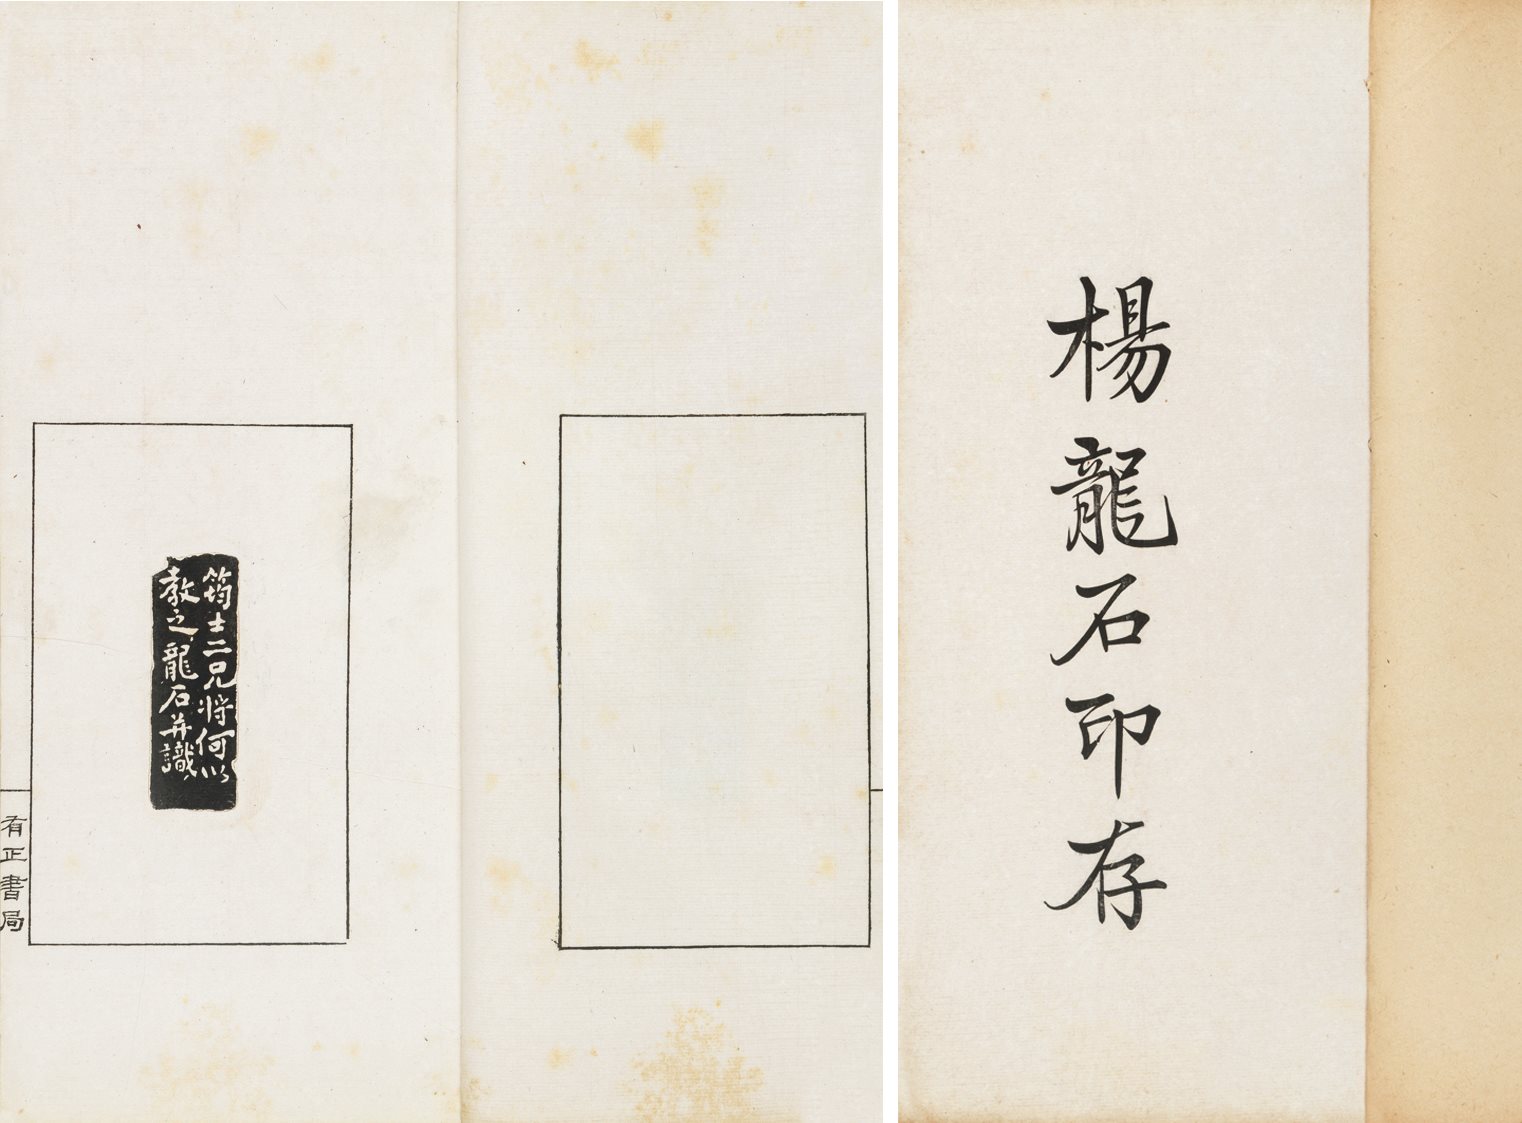 楊龍石印存
筠士二兄將何以
教之龍石并識
有正書局